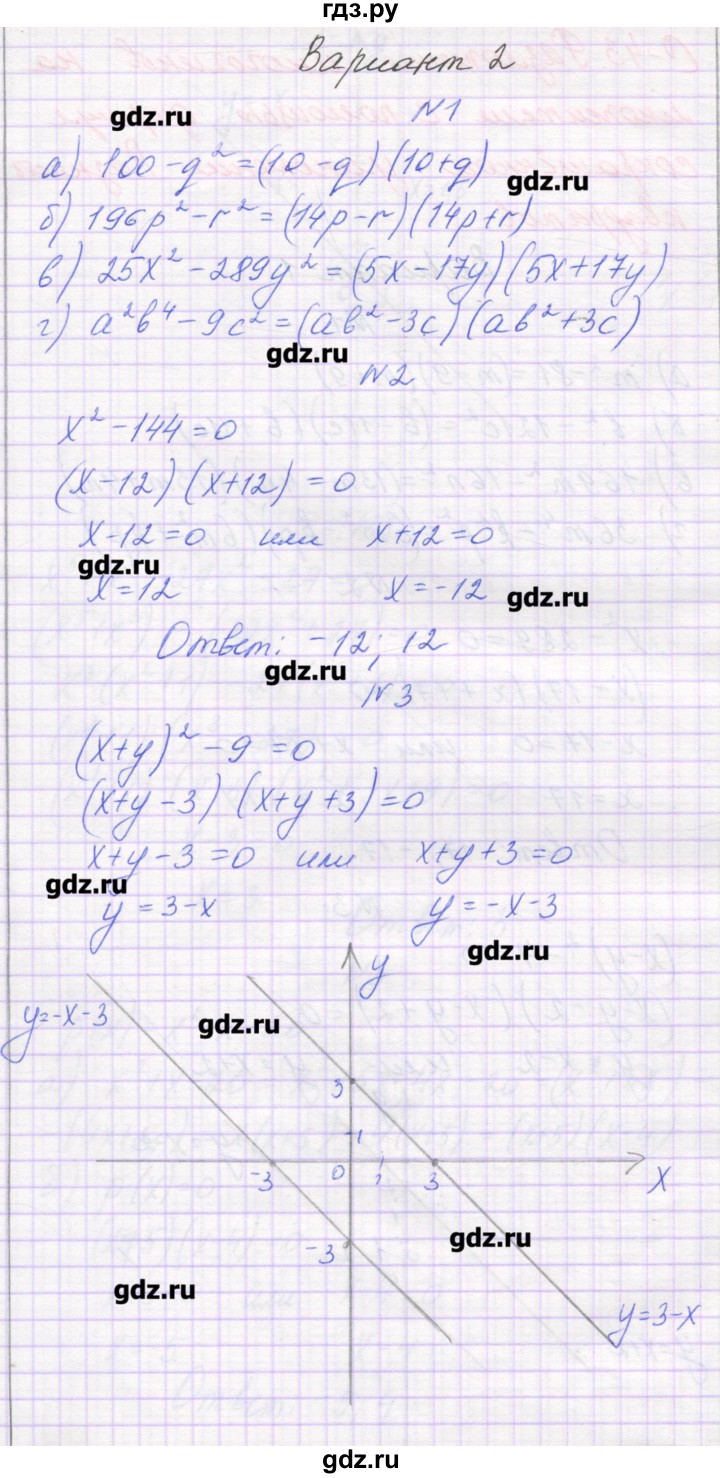 гдз.ру
Вариант 2
gdz.ru
N1
а) 100 - q² = (10 - q)(10 + q)
gdz.ru
б) 196p² - r² = (14p - r)(14p + r)
в) 25x² - 289y² = (5x - 17y)(5x + 17y)
г) a²b⁴ - 9c² = (ab² - 3c)(ab² + 3c)
gdz.ru
N2
x² - 144 = 0
(x - 12)(x + 12) = 0
x - 12 = 0 или x + 12 = 0
gdz.ru
x = 12 x = -12
gdz.ru
Ответ: -12; 12
gdz.ru
N3
(x + y)² - 9 = 0
(x + y - 3)(x + y + 3) = 0
x + y - 3 = 0 или x + y + 3 = 0
gdz.ru
y = 3 - x y = -x - 3
gdz.ru
y
y = -x - 3
gdz.ru
3
1
-3 0 1 3 x
-3
gdz.ru
gdz.ru
y = 3 - x
gdz.ru